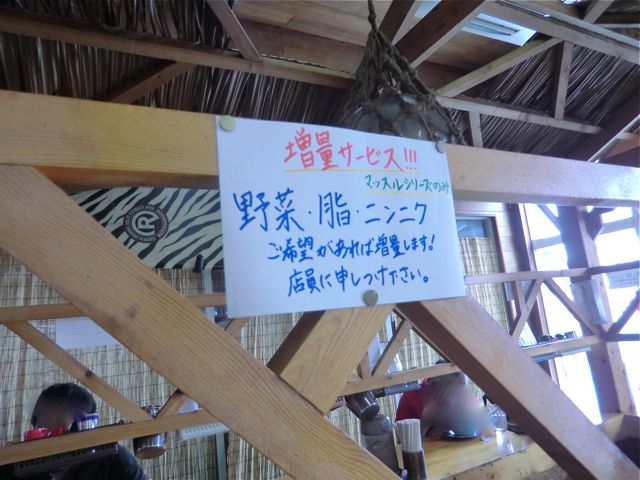 増量サービス!!!
マッスルシリーズのみ
野菜・脂・ニンニク
ご希望があれば増量します!
店員に申しつけ下さい。